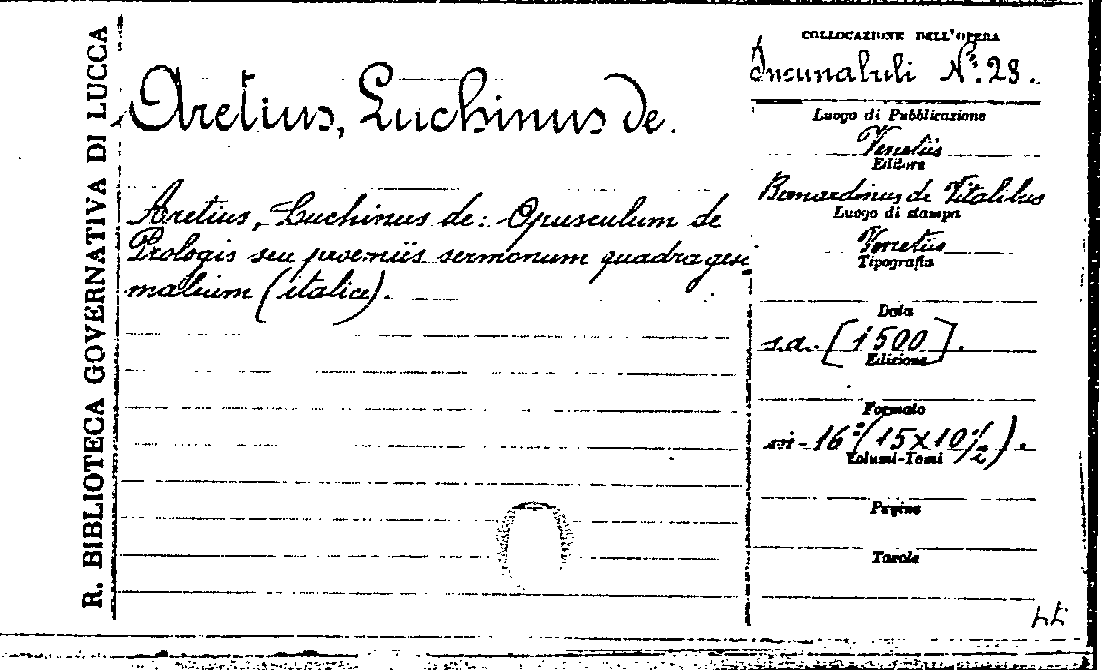 R. BIBLIOTECA GOVERNATIVA DI LUCCA
Aretius, Luchinus de.
Aretius, Luchinus de: Opusculum de
Prologis seu proemiis sermonum quadragesi
malium (italice).
COLLOCAZIONE DELL'OPERA
Incunabuli N.º 28.
Luogo di Pubblicazione
Venetiis
Editore
Bernardinus de Vitalibus
Luogo di stampa
Venetiis
Tipografia
Data
s.a. [1500].
Edizione
Formato
in-16º (15x10 1/2).
Volumi-Tomi
Pagine
Tavole